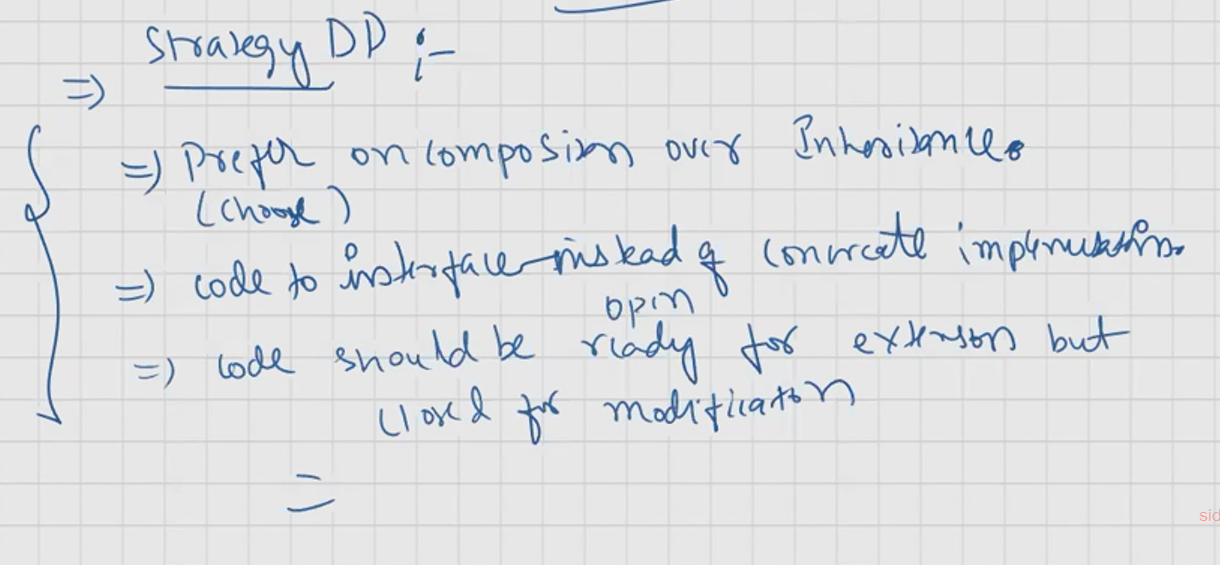 => Strategy DP :-
=> Prefer on composition over Inheritance.
(choose)
=> code to interface instead of concrete implementation.
open
=> code should be ready for extension but
closed for modification
sid